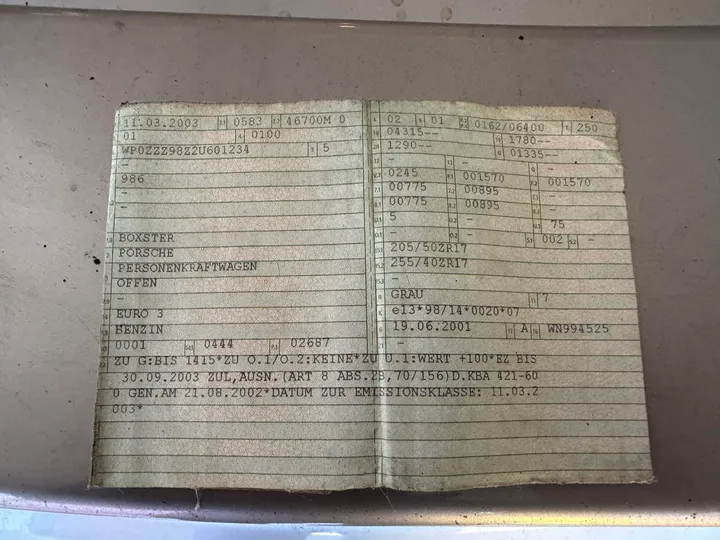 11.03.2003 2.1 0583 2.2 46700M 0
01 4 0100
WP0ZZZ98Z2U601234 3 5
-
986
-
-
BOXSTER
PORSCHE
PERSONENKRAFTWAGEN
OFFEN
-
EURO 3
BENZIN
0001 0444 02687
02 D1 0162/06400 250
04315-- 1780--
1290-- 01335--
- - -
0245 001570 001570
00775 00895 -
00775 00895 -
5 - 75
- 002 -
205/50ZR17
255/40ZR17
-
GRAU 7
e13*98/14*0020*07
19.06.2001 A WN994525
-
ZU G:BIS 1415*ZU O.1/O.2:KEINE*ZU U.1:WERT +100*EZ BIS
30.09.2003 ZUL,AUSN.(ART 8 ABS.2B,70/156)D.KBA 421-60
0 GEN.AM 21.08.2002*DATUM ZUR EMISSIONSKLASSE: 11.03.2
003*